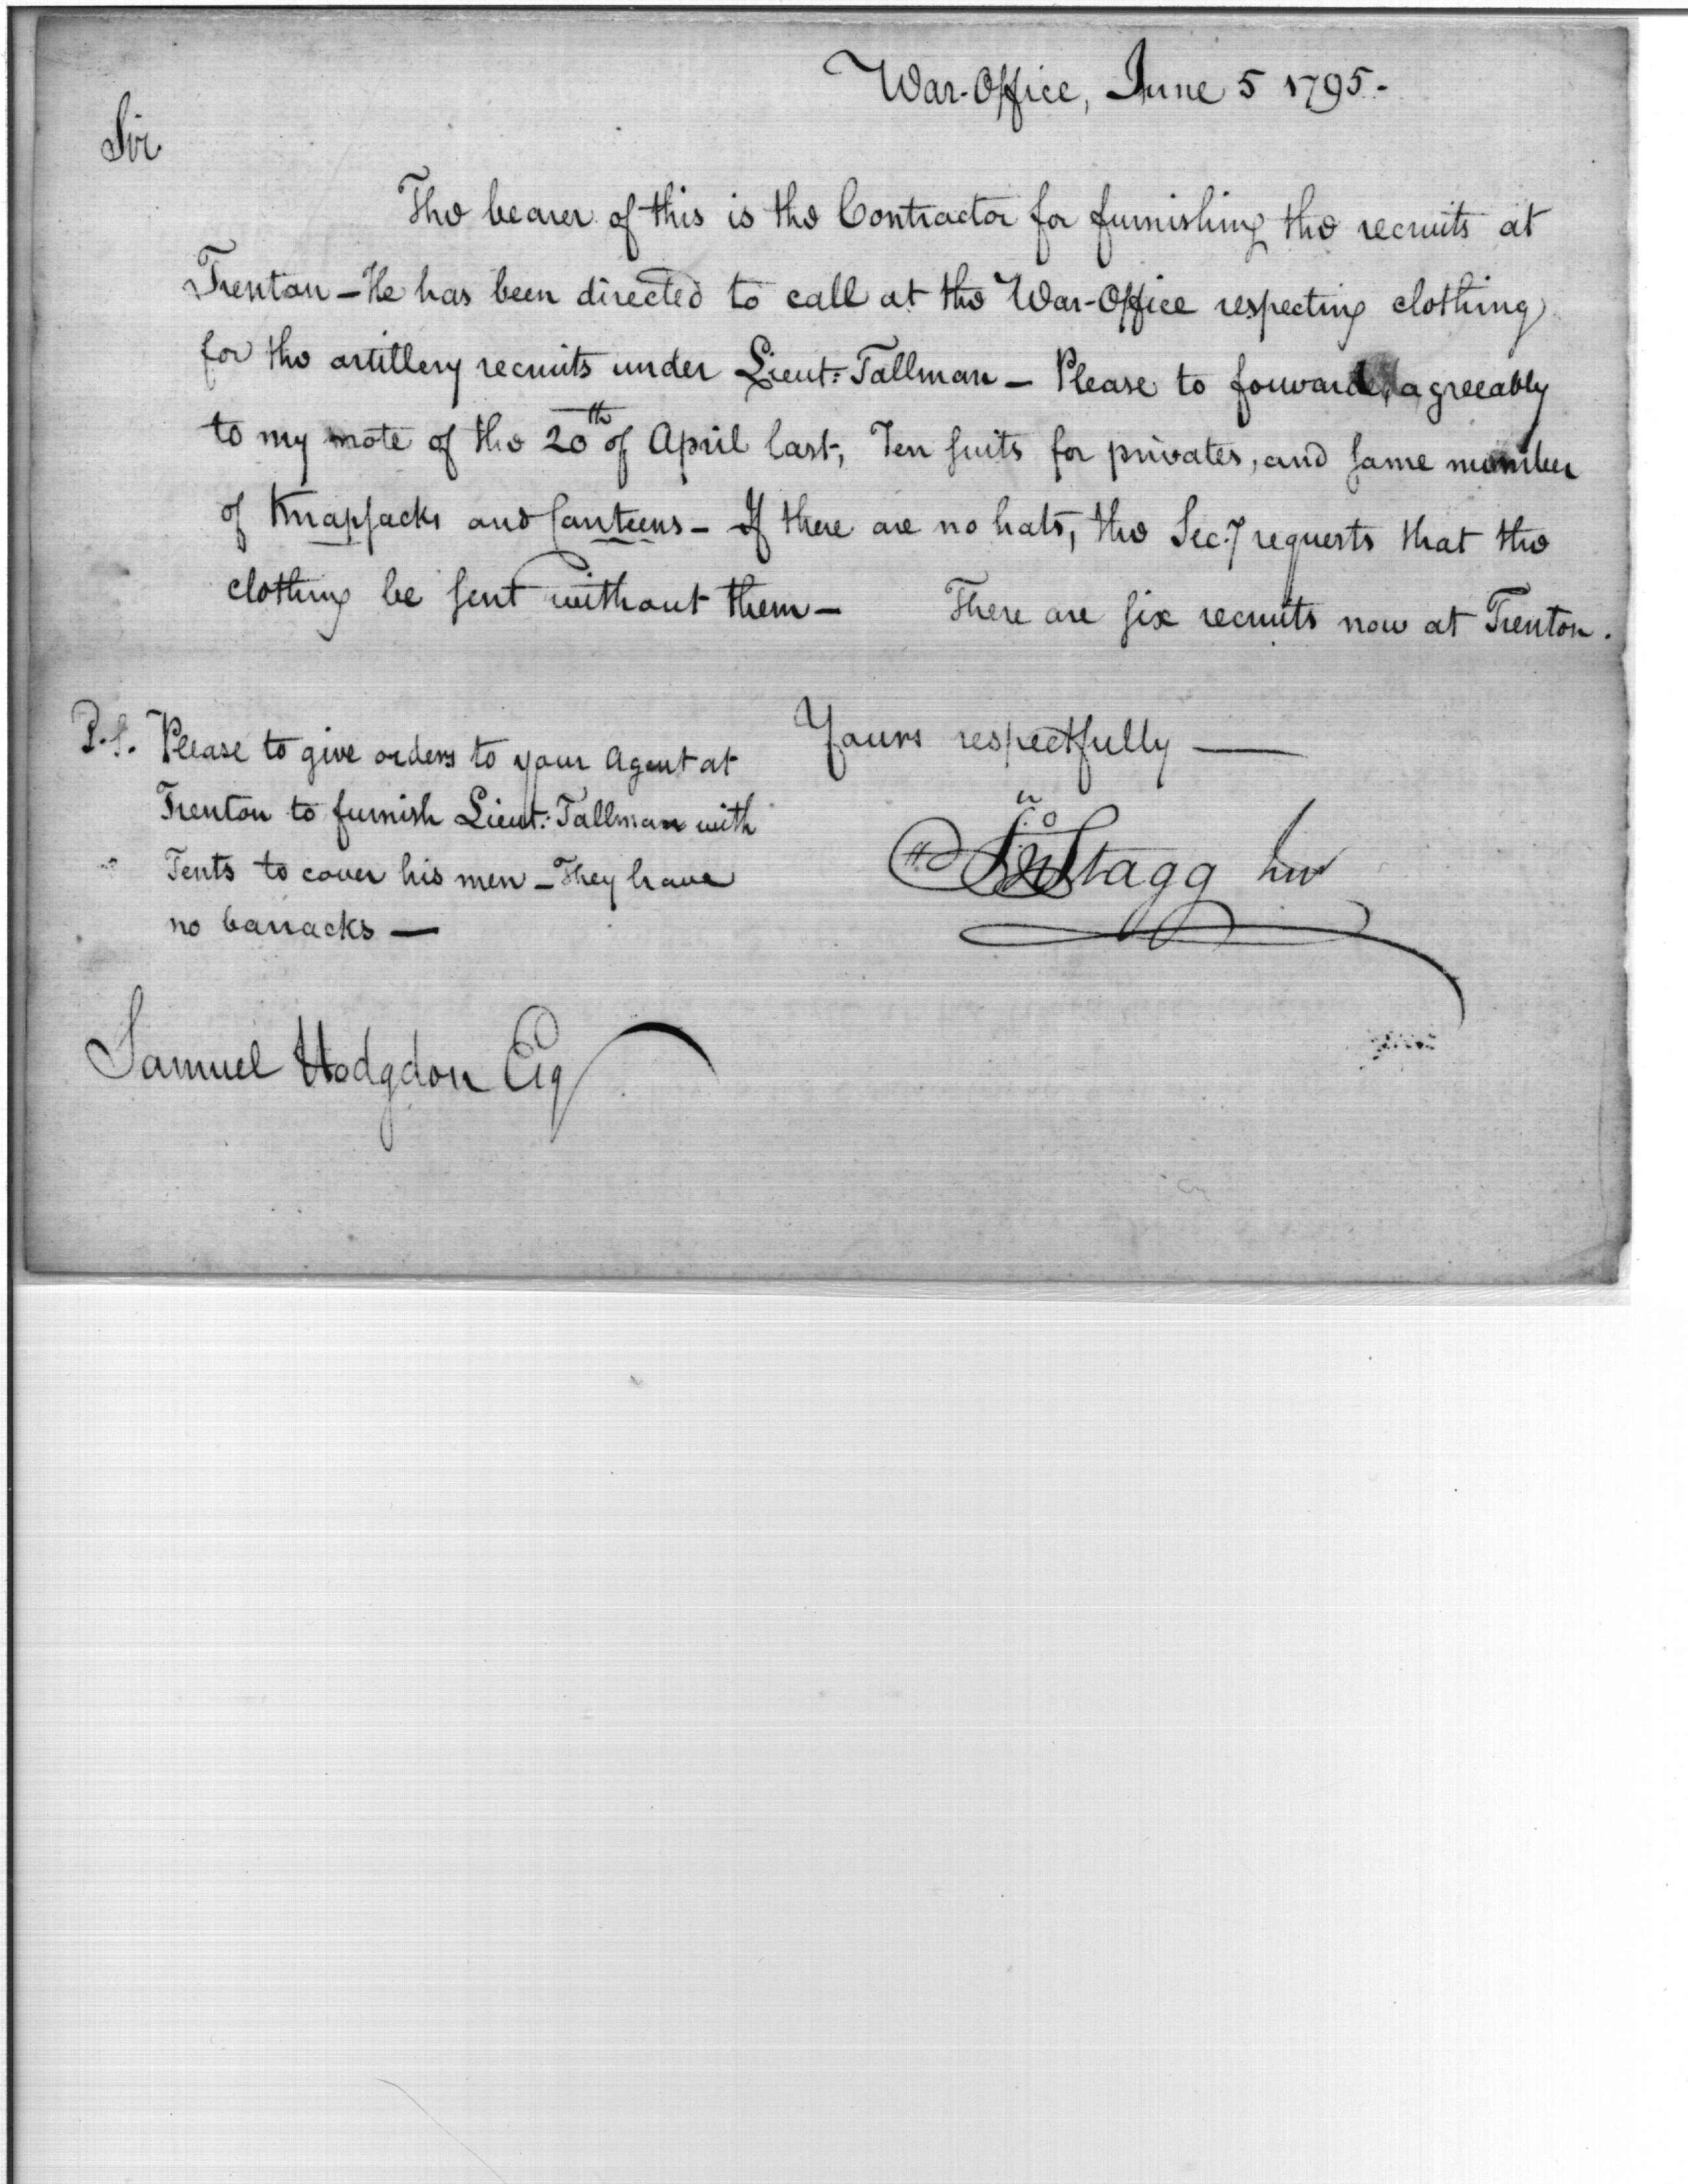 War-Office, June 5 1795.-
Sir
The bearer of this is the Contractor for furnishing the recruits at
Trenton - He has been directed to call at the War-Office respecting clothing
for the artillery recruits under Lieut: Tallman - Please to forward, agreeably
to my note of the 20th of April last, Ten suits for privates, and same number
of Knapsacks and Canteens - If there are no hats, the Sec:y requests that the
clothing be sent without them - There are six recruits now at Trenton.
Yours respectfully —
Jno Stagg Junr
P.S. Please to give orders to your Agent at
Trenton to furnish Lieut: Tallman with
Tents to cover his men - They have
no barracks —
Samuel Hodgdon Esq